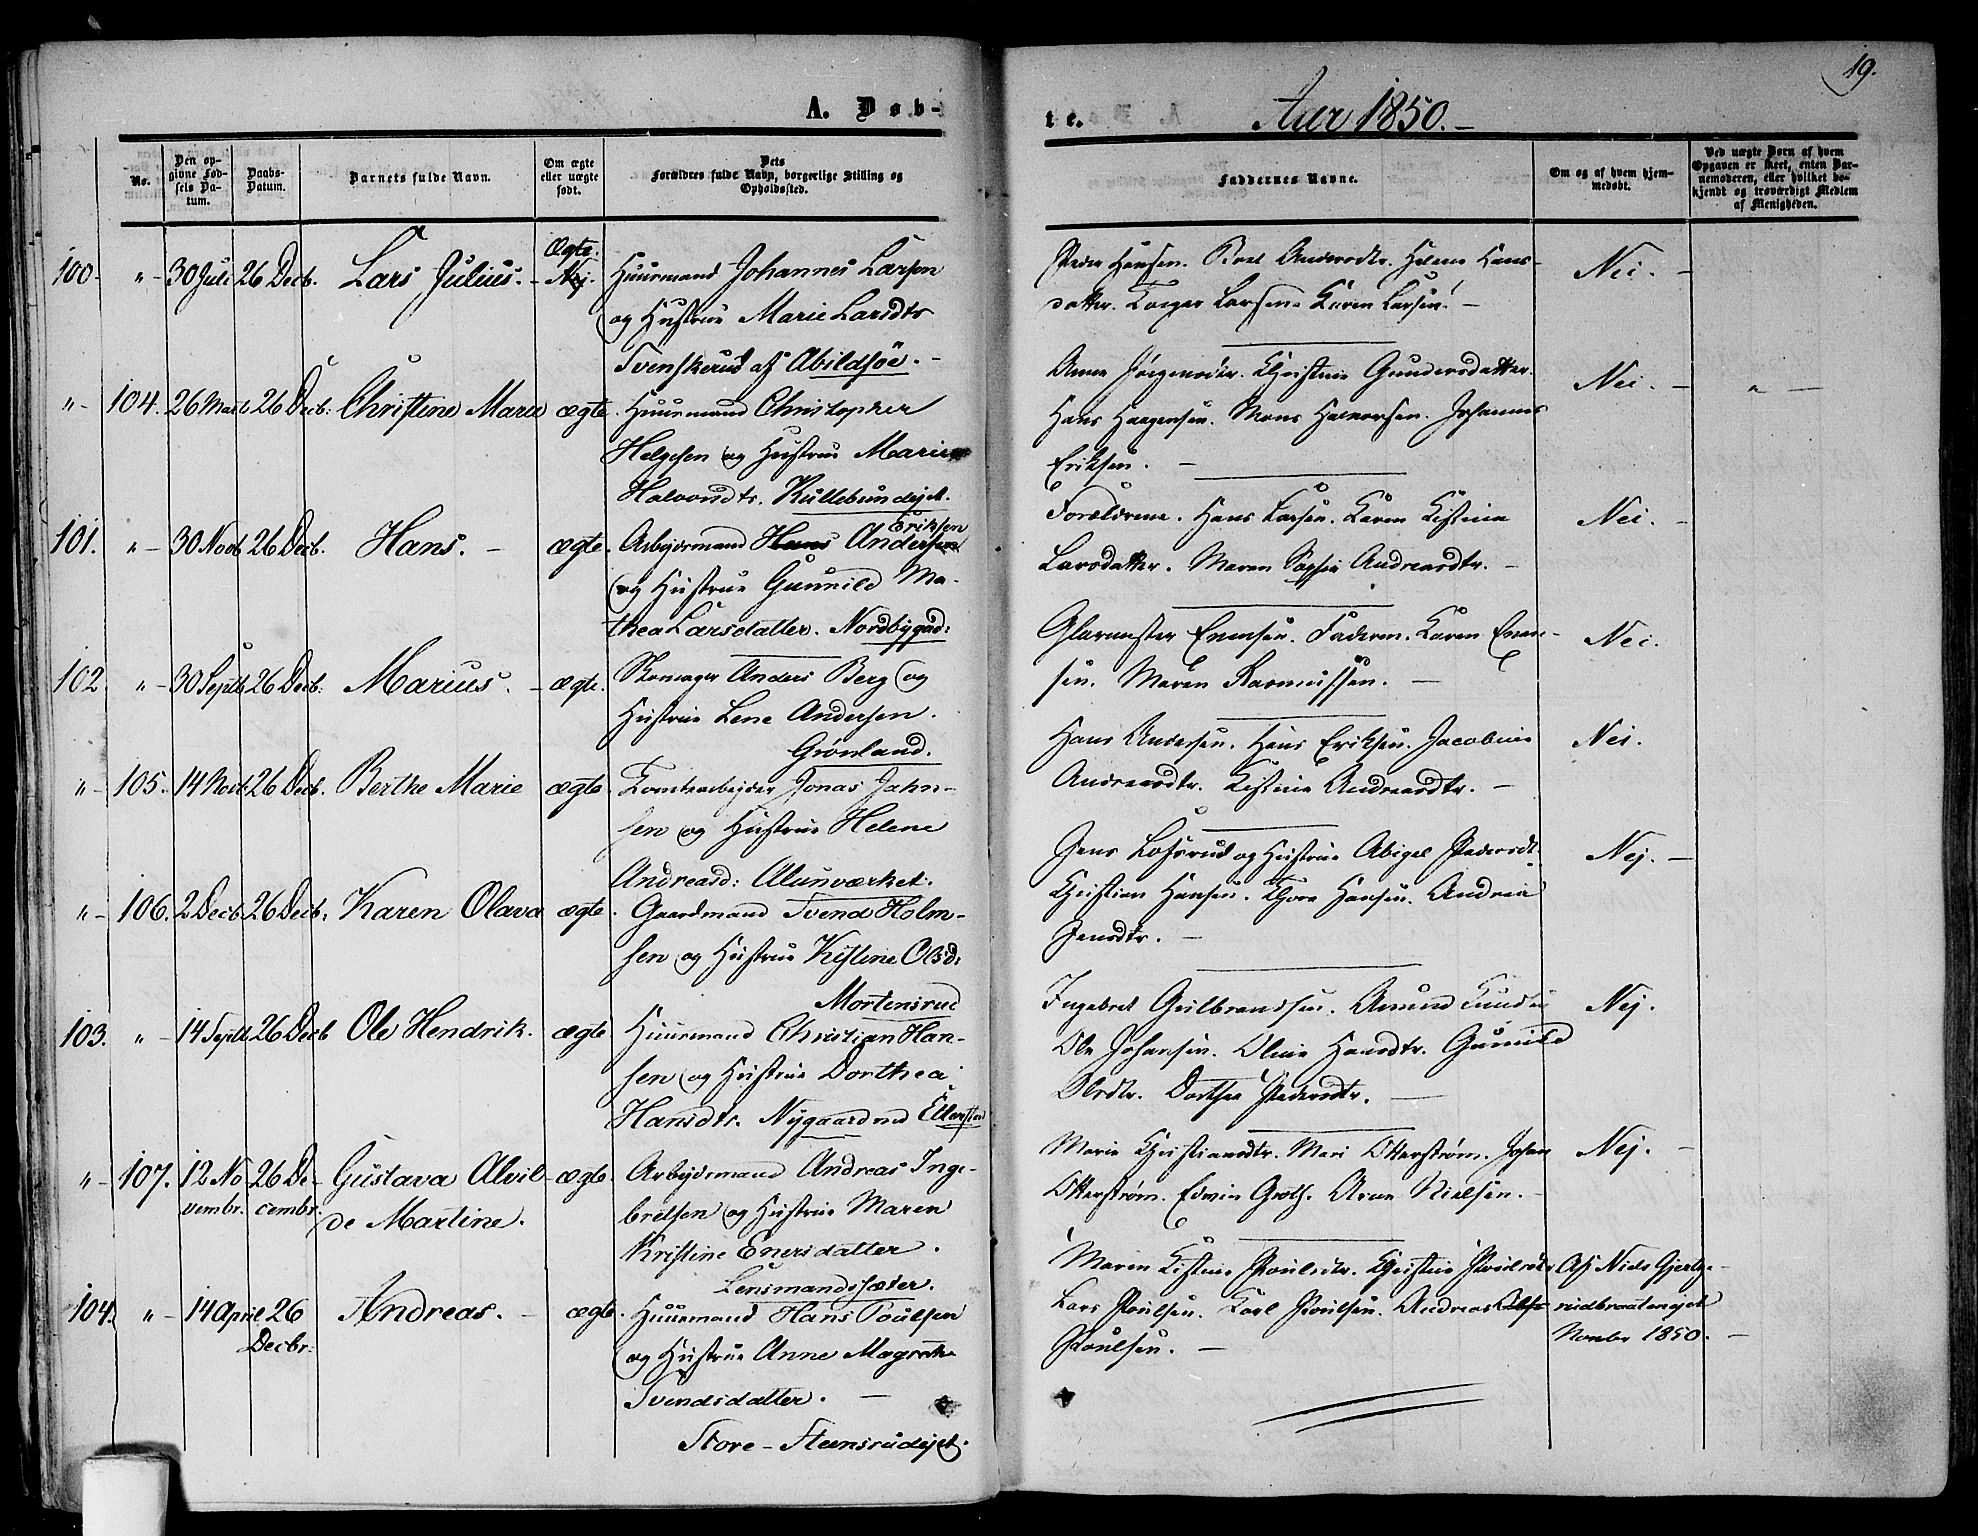 19.
A. Døb-
te. Aar 1850.
No.
Den op-
givne Fød-
sels Da-
tum.
Daabs-
Datum.
Barnets fulde Navn.
Om ægte
eller uægte
født.
Dets
Forældres fulde Navn, borgerlige Stilling og
Opholdssted.
Faddernes Navne.
Om og af hvem hjem-
medøbt.
Ved uægte Børn af hvem
Opgaven er skeet, enten Bar-
nemoderen, eller hvilket be-
kjendt og troværdigt Medlem
af Menigheden.
100. " 30 Juli 26 Decb. Lars Julius. Ægte. Nej.
Huusmand Johannes Larsen
og Hustrue Marie Larsdtr
Svenskerud af Abildsøe.
Peder Hansen. Andersdtr. Helene Hans-
datter. Larsen. Karen Larsen.
Nei.
" 104. 26 26 Decb: Christine Marie ægte.
Huusmand Christopher
Helgesen og Hustrue Marie
Halvorsdtr. Kullebundejet.
Anne Jørgensdtr. Christine Gundersdatter.
Hans Haagensen. Mons Halvorsen. Johannes
Eriksen.
Nei. "
101. " 30 Novb 26 Decb. Hans. ægte.
Arbejdsmand Hans Andersen Eriksen
og Hustrue Gunnild Ma-
thea Larsdatter. Nordbygad:
Forældrene. Hans Larsen. Karen Kistine
Larsdatter. Maren Sophie Andreasdtr.
Nei.
102. " 30 Septb 26 Decb: Marius. ægte.
Skomager Anders Berg og
Hustrue Lene Andersen.
Grønland.
Glarmester Enersen. Faderen. Karen Ener-
sen. Maren Rasmussen.
Nei.
" 105. 14 Novb 26 Decb. Berthe Marie ægte.
Tomtearbejder Jonas Jahn-
sen og Hustrue Helene
Andreasd: Alunværket.
Hans Andersen. Hans Eriksen. Jacobine
Andreasdtr. Kistine Andreasdtr.
Nei.
" 106. 2 Decb. 26 Decb: Karen Olava ægte.
Gaardmand Svend Holm-
sen og Hustrue Kistine Olsd:
Mortensrud
Jens Lofsrud og Hustrue Abigel Pedersdt.
Christian Hansen. Thore Hansen. Andrea
Jensdtr.
Nej.
103. " 14 Septb 26 Decb Ole Hendrik. ægte.
Huusmand Christian Han-
sen og Hustrue Dorthea
Hansdtr. Nygaard ved Ellorstad
Ingebret Gulbrandsen. Amund
Ole Johansen. Oline Hansdtr. Gunild
Olsdtr. Dorthea Pedersdtr.
Nej.
" 107. 12 No 26 De- Gustava Alvil- ægte.
vembr. cembr: de Martine.
Arbejdsmand Andreas Inge-
bretsen og Hustrue Maren
Kristine Enersdatter.
Lensmandssæter.
Marie Christiansdtr. Mari Otterstrøm. Johan
Otterstrøm. Edvin Groth. Arne Nielsen.
Nej.
104. " 14 April 26 Andreas. ægte.
Decbr:
Huusmand Hans Poulsen
og Hustrue Anne Magrethe
Svendsdatter.
Store-Steensrudejet.
Maren Kistine Poulsdtr. Christine Poulsdtr
Lars Poulsen. Carl Poulsen. Andreas
Poulsen.
Af Niels Gjerks-
rudbraatenejet
Novbr 1850.